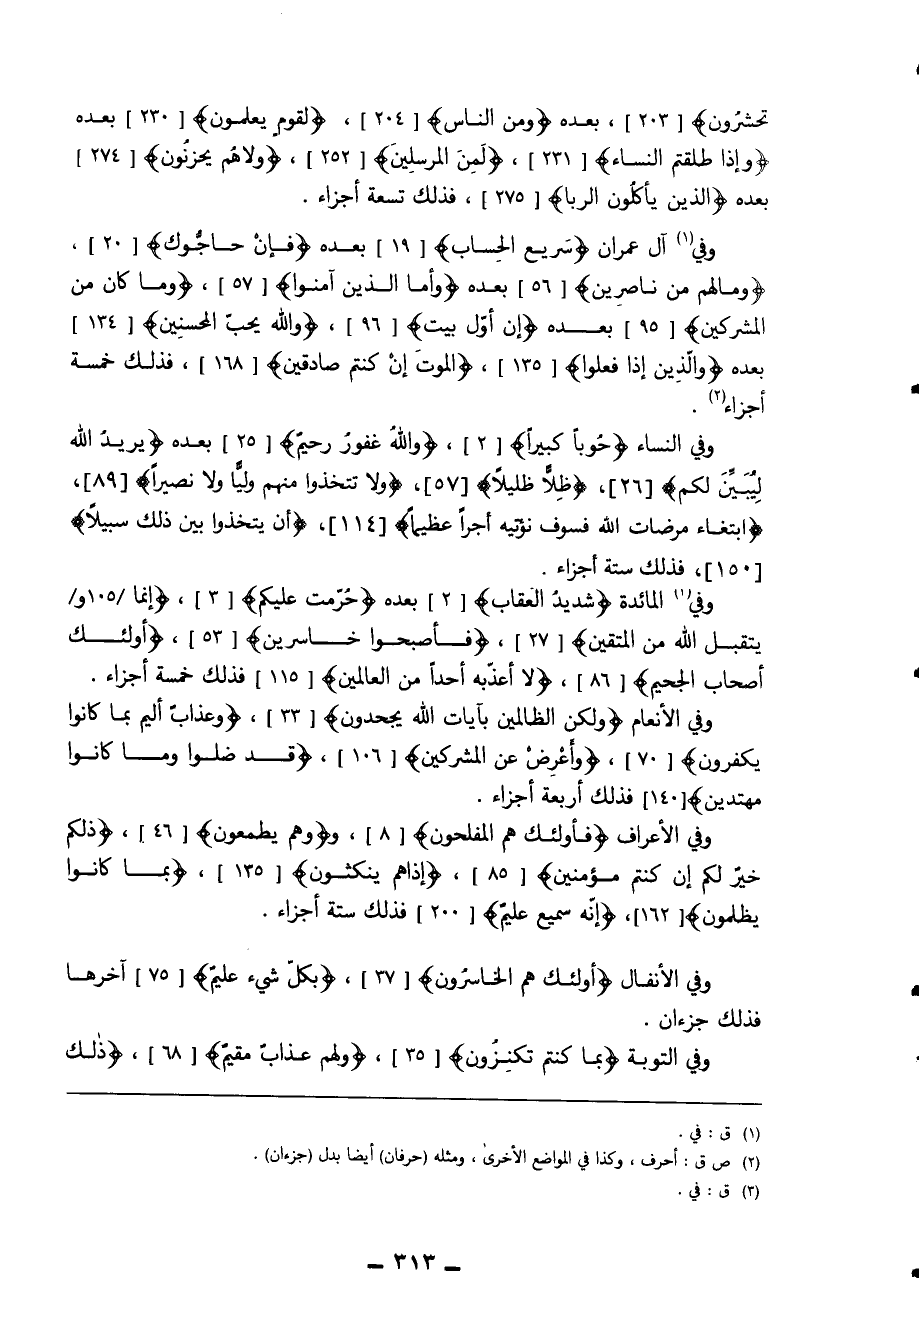 تحشرُون﴾ [ ٢٠٣ ] ، بعده ﴿ومن الناس﴾ [ ٢٠٤ ] ، ﴿لقوم يعلمون﴾ [ ٢٣٠ ] بعده
﴿وإذا طلقتم النساء﴾ [ ٢٣١ ] ، ﴿لَمِنَ المرسلِينَ﴾ [ ٢٥٢ ] ، ﴿ولاهُم يحزنُون﴾ [ ٢٧٤ ]
بعده ﴿الذين يأكلُون الربا﴾ [ ٢٧٥ ] ، فذلك تسعة أجزاء .
وفي(١) آل عمران ﴿سَريع الحِساب﴾ [ ١٩ ] بعـده ﴿فـإنْ حـاجُّوك﴾ [ ٢٠ ] ،
﴿ومـالهم من نـاصرِين﴾ [ ٥٦ ] بعده ﴿وأما الـذين آمنـوا﴾ [ ٥٧ ] ، ﴿ومـا كان من
المشركين﴾ [ ٩٥ ] بعـــده ﴿إن أوّل بيت﴾ [ ٩٦ ] ، ﴿والله يحبّ المحسنِين﴾ [ ١٣٤ ]
بعده ﴿والّذِين إذا فعلوا﴾ [ ١٣٥ ] ، ﴿الموتَ إنْ كنتم صادقين﴾ [ ١٦٨ ] ، فذلـك خمسـة
أجزاء(٢) .
وفي النساء ﴿حُوباً كبيراً﴾ [ ٢ ] ، ﴿واللهُ غفورٌ رحيمٌ﴾ [ ٢٥ ] بعـده ﴿يريـدُ الله
لِيُبَيِّنَ لكم﴾ [٢٦]، ﴿ظِلاًّ ظليلاً﴾ [٥٧]، ﴿ولا تتخذوا منهم وليًّا ولا نصيراً﴾ [٨٩]،
﴿ابتغـاء مرضات الله فسوف نؤتيه أجراً عظيماً﴾ [١١٤]، ﴿أن يتخذوا بين ذلك سبيلاً﴾
[١٥٠]، فذلك ستة أجزاء .
وفي(١) المائدة ﴿شديدُ العقاب﴾ [ ٢ ] بعده ﴿حُرّمت عليكم﴾ [ ٣ ] ، ﴿إنما /١٠٥و/
يتقبـل الله من المتقين﴾ [ ٢٧ ] ، ﴿فــأصبحـوا خــاسرين﴾ [ ٥٣ ] ، ﴿أولئــك
أصحاب الجحيم﴾ [ ٨٦ ] ، ﴿لا أعذّبه أحداً من العالمين﴾ [ ١١٥ ] فذلك خمسة أجزاء .
وفي الأنعام ﴿ولكن الظالمين بآيات الله يجحدون﴾ [ ٣٣ ] ، ﴿وعذابٌ أليم بما كانوا
يكفرون﴾ [ ٧٠ ] ، ﴿وأَعْرِضْ عن المشركين﴾ [ ١٠٦ ] ، ﴿قــد ضلـوا ومــا كانـوا
مهتدين﴾[١٤٠] فذلك أربعة أجزاء .
وفي الأعراف ﴿فـأولئـك هم المفلحون﴾ [ ٨ ] ، و﴿وهم يطمعون﴾ [ ٤٦ ] ، ﴿ذلكم
خيرٌ لكم إن كنتم مـؤمنين﴾ [ ٨٥ ] ، ﴿إذاهم ينكثـون﴾ [ ١٣٥ ] ، ﴿بمــا كانـوا
يظلمون﴾[ ١٦٢]، ﴿إنّه سميع عليمٌ﴾ [ ٢٠٠ ] فذلك ستة أجزاء .
وفي الأنفـال ﴿أولئـك هم الخاسرُون﴾ [ ٣٧ ] ، ﴿بكلّ شيء عليمٌ﴾ [ ٧٥ ] آخرهـا
فذلك جزءان .
وفي التوبـة ﴿بما كنتم تكنِزُون﴾ [ ٣٥ ] ، ﴿ولهم عـذابٌ مقيمٌ﴾ [ ٦٨ ] ، ﴿ذٰلـك
(١) ق : في .
(٢) ص ق : أحرف ، وكذا في المواضع الأخرىٰ ، ومثله (حرفان) أيضا بدل (جزءان) .
(٣) ق : في .
ــ ٣١٣ ــ